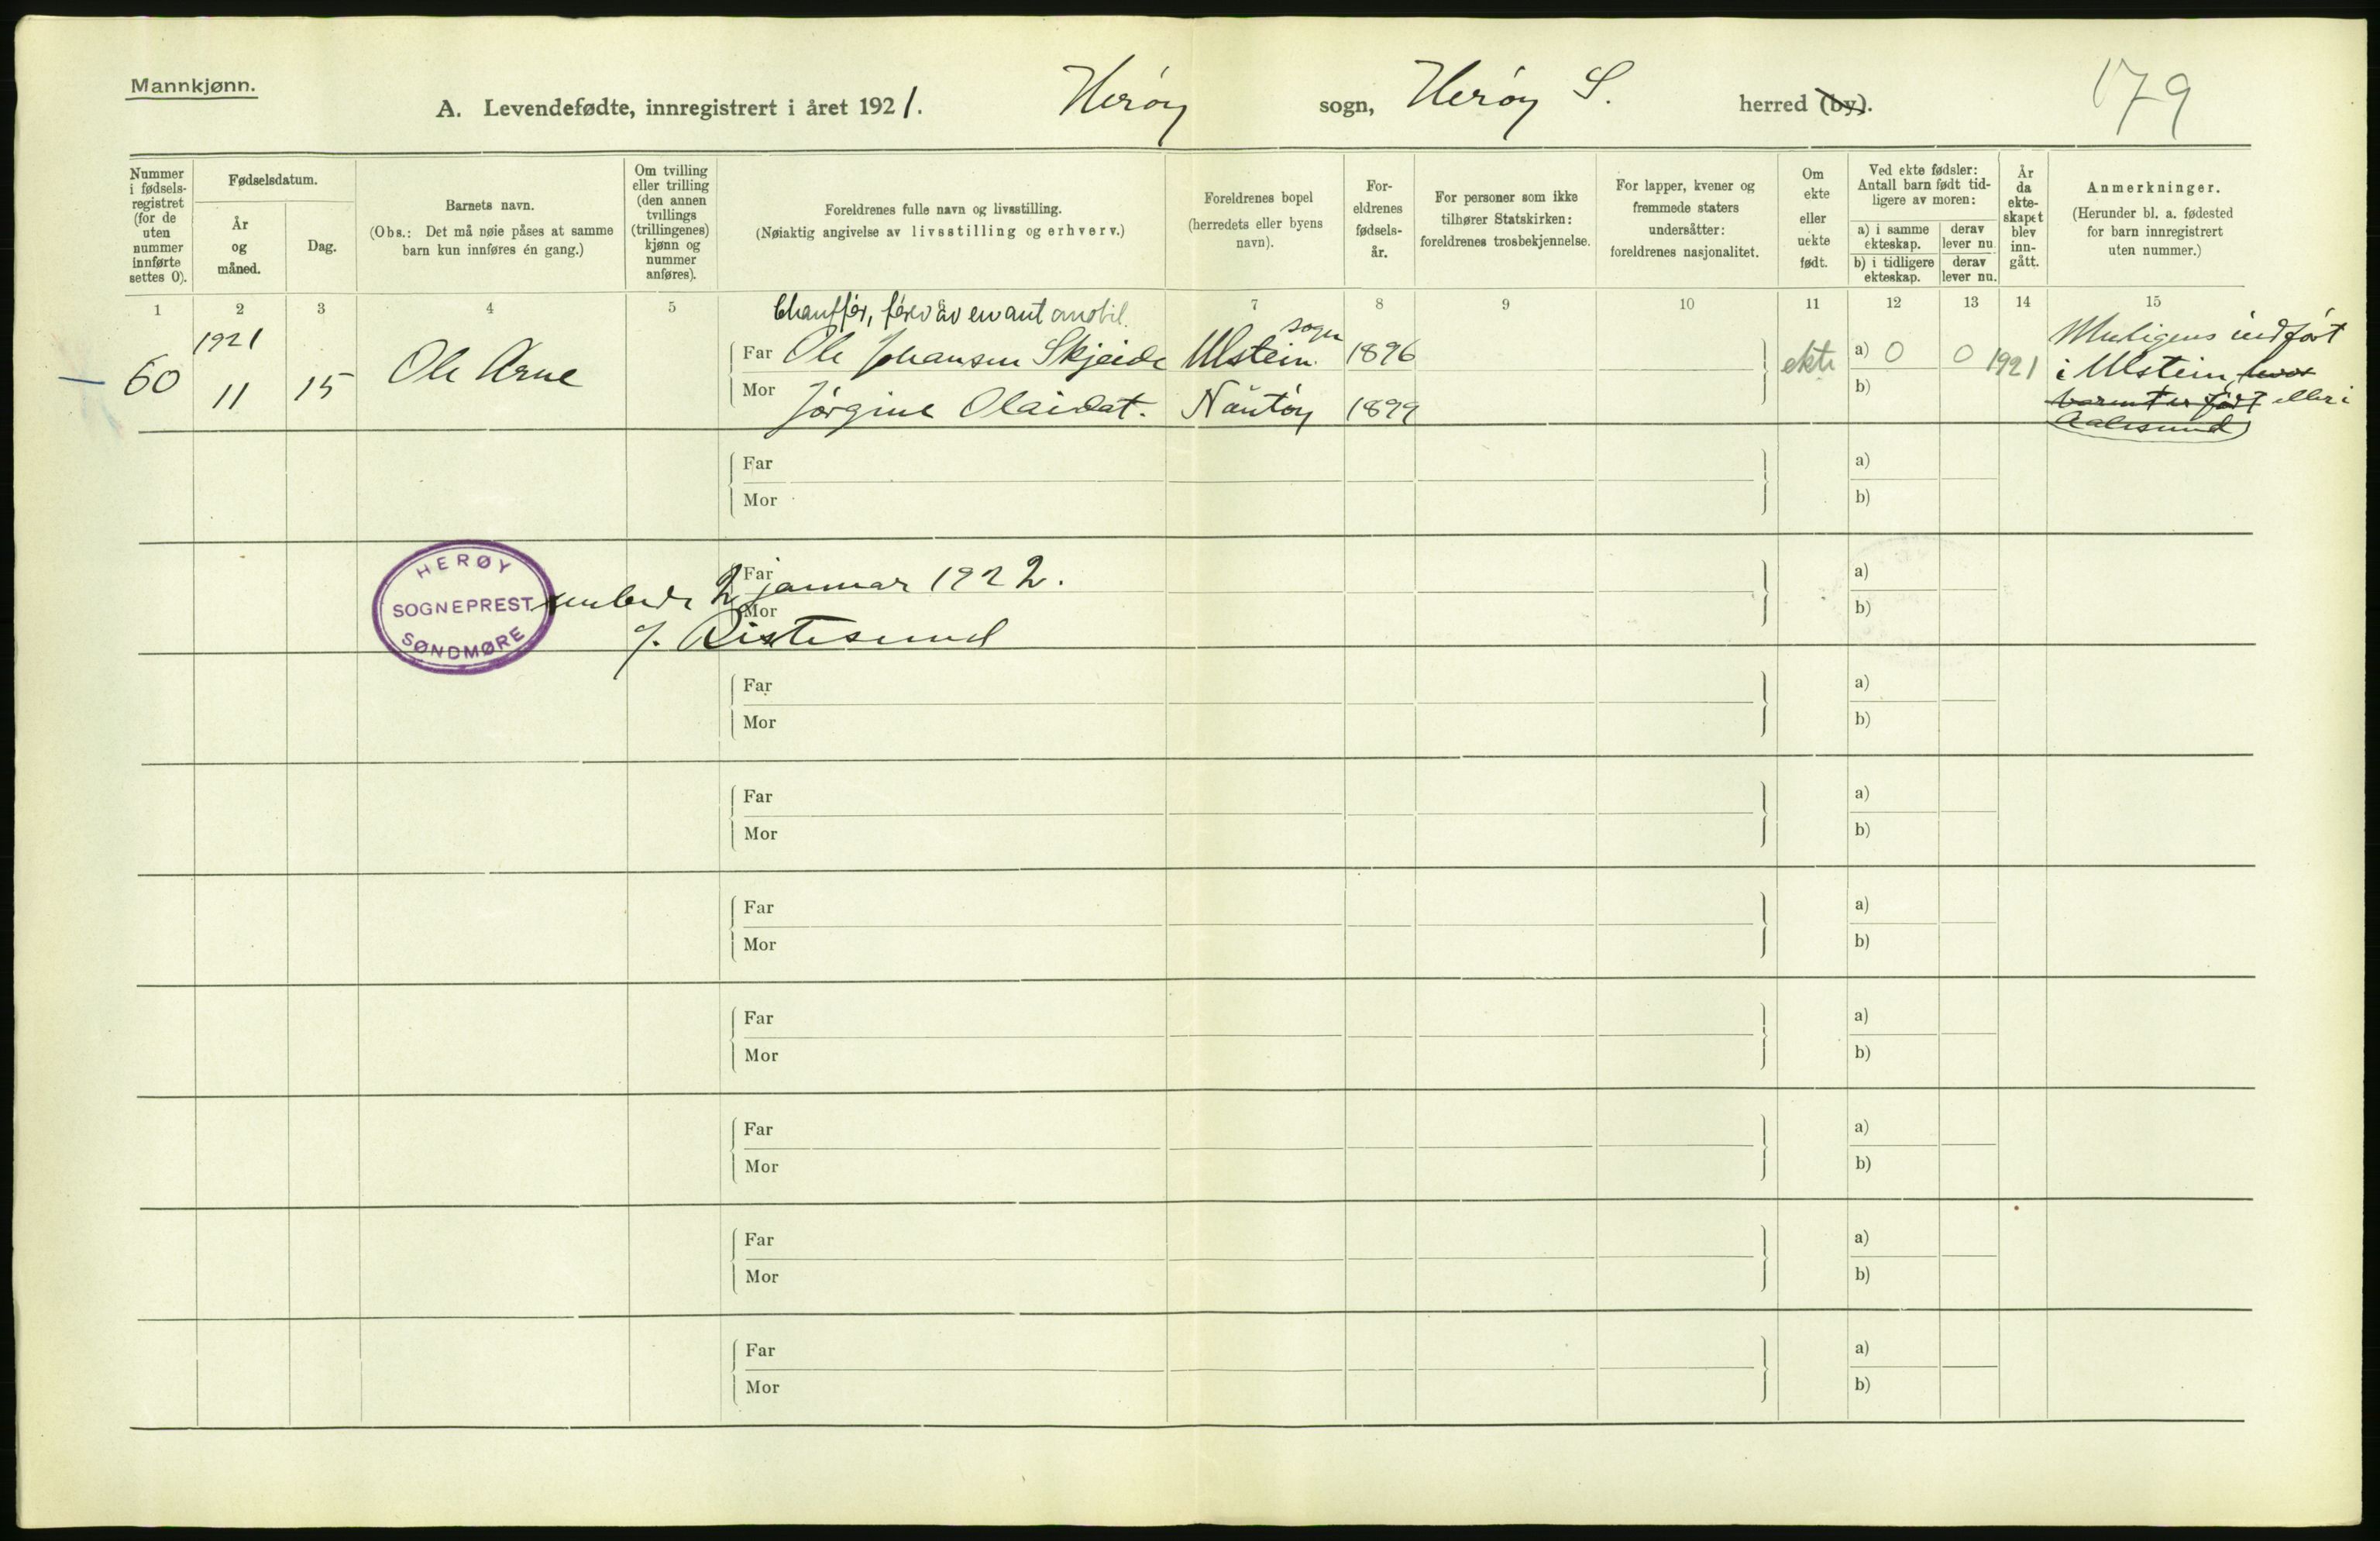 Mannkjønn.
A. Levendefødte, innregistrert i året 1921. Herøy sogn, Herøy S. herred (by). 179
Nummer i fødsels- registret (for de uten nummer innførte settes 0).
Fødselsdatum.
År og måned.
Dag.
Barnets navn.
(Obs.: Det må nøie påses at samme barn kun innføres én gang.)
Om tvilling eller trilling (den annen tvillings (trillingenes) kjønn og nummer anføres).
Foreldrenes fulle navn og livsstilling.
(Nøiaktig angivelse av livsstilling og erhverv.)
Foreldrenes bopel
(herredets eller byens navn).
For- eldrenes fødsels- år.
For personer som ikke tilhører Statskirken: foreldrenes trosbekjennelse.
For lapper, kvener og fremmede staters undersåtter: foreldrenes nasjonalitet.
Om ekte eller uekte født.
Ved ekte fødsler: Antall barn født tid- ligere av moren:
a) i samme ekteskap.
derav lever nu.
b) i tidligere ekteskap.
derav lever nu.
År da ekte- skapet blev inn- gått.
Anmerkninger.
(Herunder bl. a. fødested for barn innregistrert uten nummer.)
1 2 3 4 5 7 8 9 10 11 12 13 14 15
Chauffør, fører av en automobil.
60 1921 11 15 Ole Arne
Far Ole Johansen Skjeide Ulstein sogn 1896
Mor Jørgine Olaidat. Nautøy 1899
ekte a) 0 0 1921
b)
Muligens indført
i Ulstein, hvor
barnet er født eller i
Aalesund
Far a)
Mor b)
HERØY
SOGNEPREST
SØNDMØRE
Far 2 januar 1922. a)
Mor b)
Ristesund
Far a)
Mor b)
Far a)
Mor b)
Far a)
Mor b)
Far a)
Mor b)
Far a)
Mor b)
Far a)
Mor b)
Far a)
Mor b)